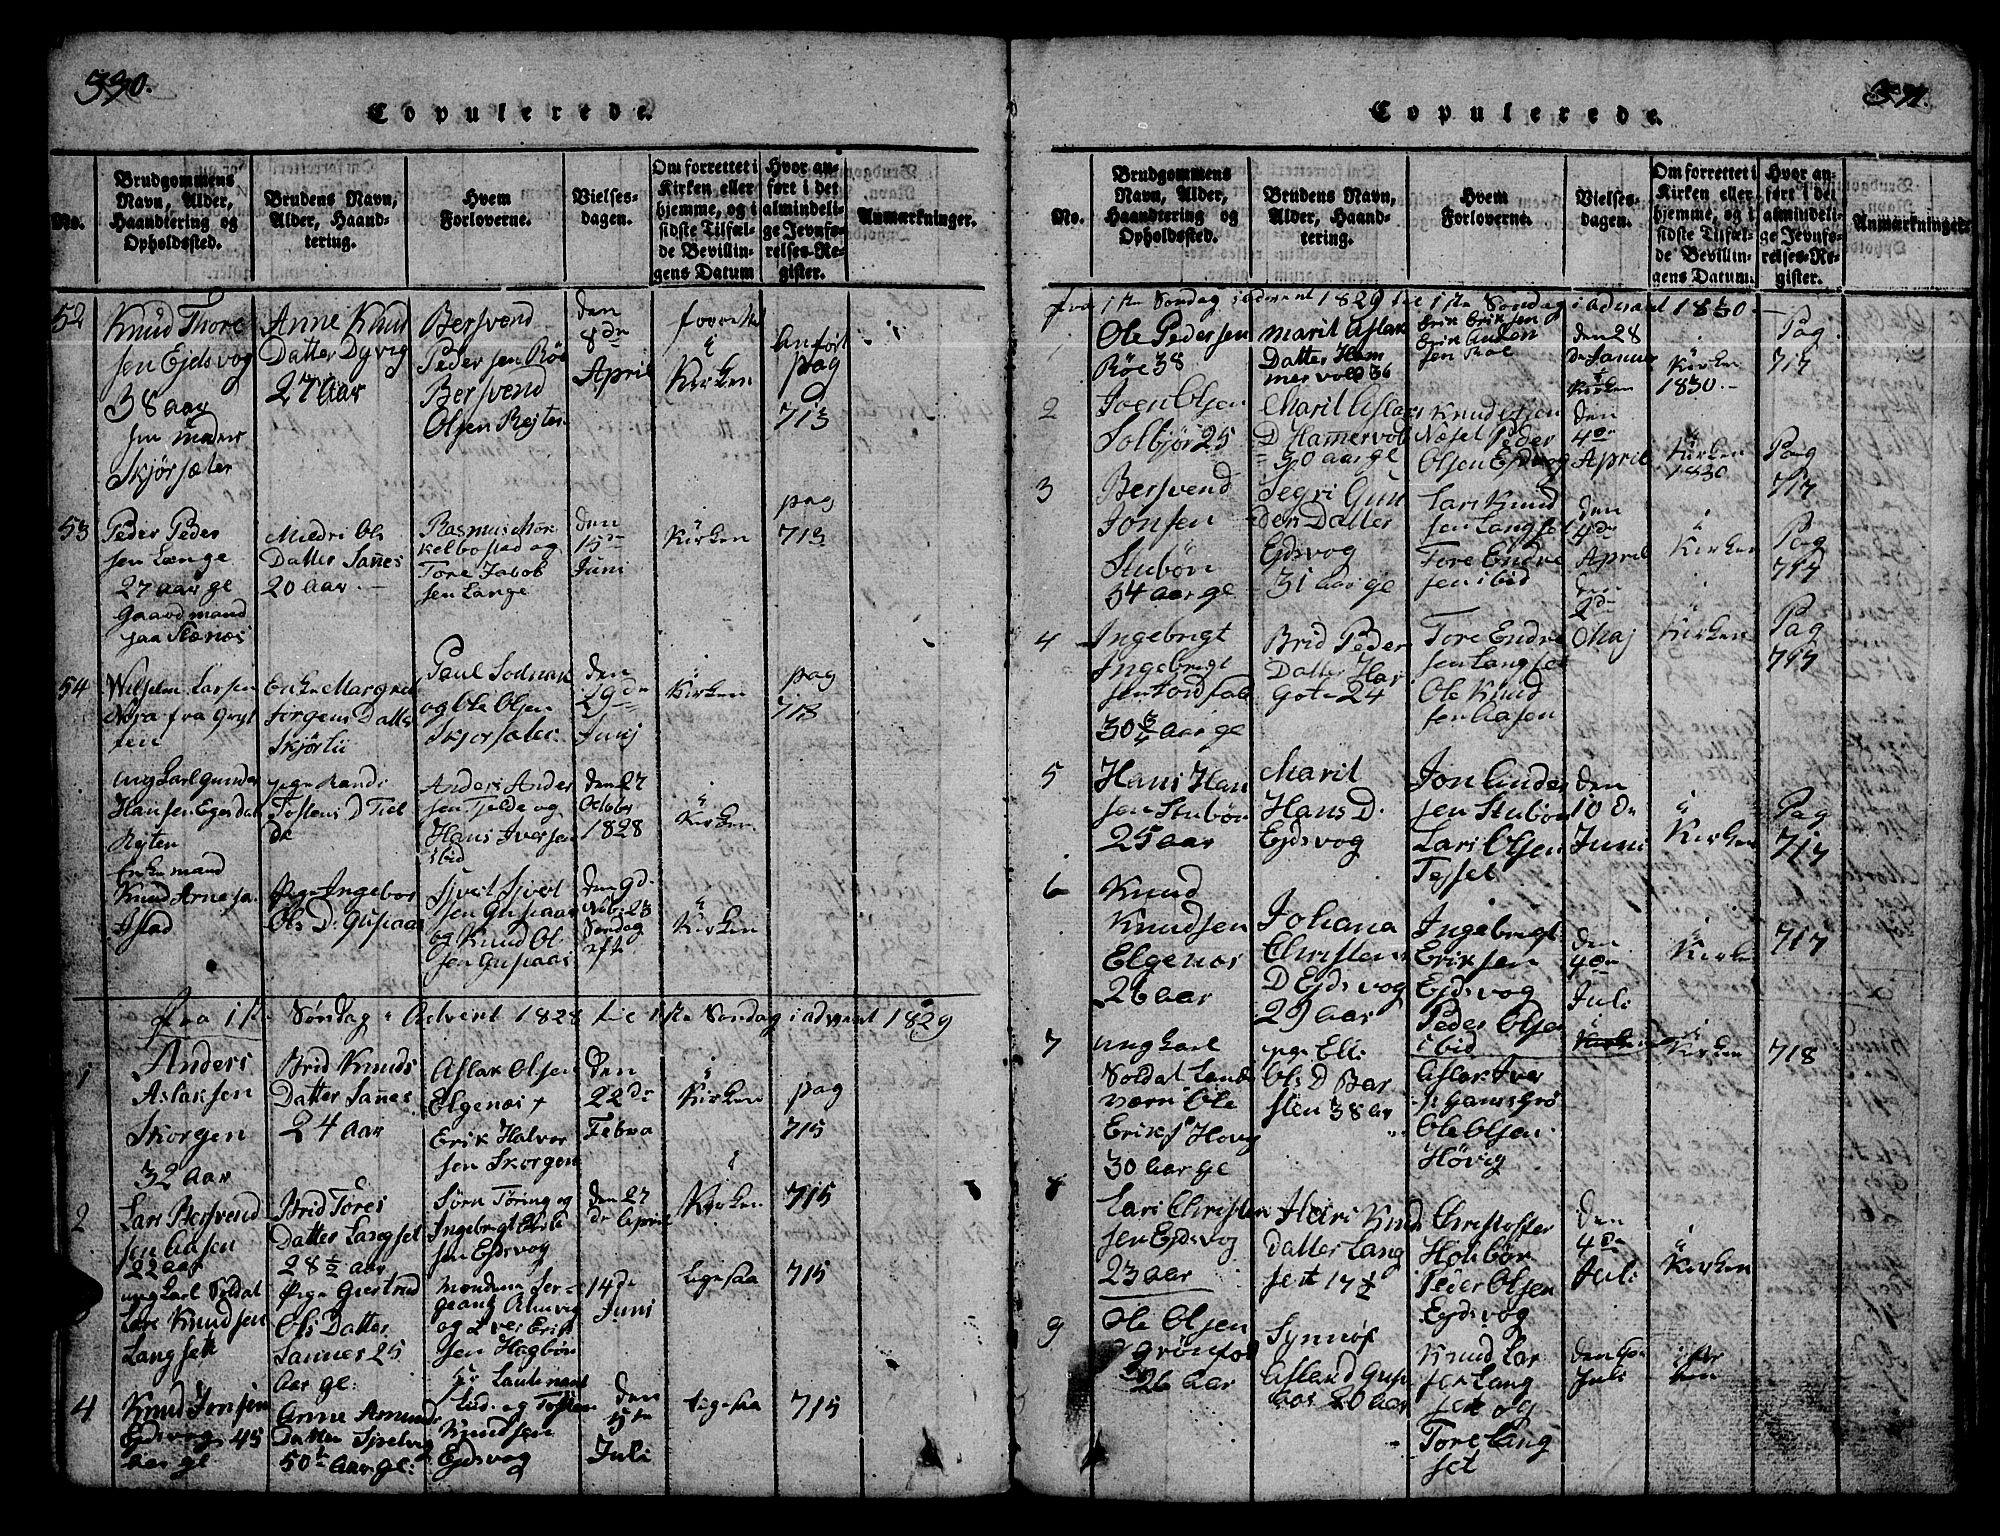 330.
Copulerede.
No.
Brudgommens
Navn, Alder,
Haandtering og
Opholdssted.
Brudens Navn,
Alder, Haand-
tering.
Hvem
Forloverne.
Vielses-
dagen.
Om forrettet i
Kirken eller
hjemme, og i
sidste Tilfæl-
de Bevillin-
gens Datum
Hvor an-
ført i det
almindeli-
ge Jevnfø-
relses-Re-
gister.
Anmærkninger.
52
Knud Thore
sen Ejdsvog
38 aar
Skjørsæter
Anne Knud
Datter Dyvig
27 aar
Bersvend
Pedersen Röe
Bersvend
Olsen Rejten
den
8de
April
Kirken
anført
pag
713
53
Peder Peder
sen Længe
27 aar gl
Gaardmand
Ols
Datter Sanes
20 aar
Rasmus Thor
kelbostad og
Tore Jacob
sen Lange
den
15de
Juni
Kirken
pag
713
54
Wilhelm Larsen
Nøra fra Gryt
ten
Enke Margret
Jørgens Datter
Skjørlii
Paul
og Ole Olsen
Skjørsæter
den
29de
Junj
Kirken
pag
713
ung Karl Gunder
Hansen Egesdal
Rejten
pige Randi
Tostens D Tiel
de
Anders Ander
sen Tjelde og
Hans Iversen
ibid
den 27
October
1828
Kirken
Enkemand
Knud Arnesen
Pige Ingebor
Ols D. Gusiaas
Sjvert Sjvert
sen Gusiaas
og Knud Ol
sen Gusiaas
den 9de
Søndag
Kirken
fra 1ste Søndag i Advent 1828 til 1ste Søndag i advent 1829
1
Anders
Aslaksen
Skorgen
32 aar
Brid Knuds
Datter Sanes
24 aar
Aslak Olsen
Elgenæs +
Erik Halvor
sen Skorgen
den
22de
Febru
Kirken
pag
715
2
Lars Bersvend
sen Aasen
22 aar
Brid Tores
Datter Langset
28 ½ aar
Sørn Tøring og
Ingebrigt Erik
sen Ejdsvog
den 27
de April
Kirken
715
ung Karl Soldat
Tore Knudsen
Langseth
Pige Giertrud
Ols Datter
Sannes 25
aar gl:
og Iver Erik
sen Hagbøn
14de
Juni
Ligesaa
715
4
Knud Jonsen
Ejdsvog 45
aar gl
Anne Amunds
Datter Sjselvig
50 aar gl:
Hr Lautenant
Lud. og Tosten
Knudsen
Ejdsvog
den
15de
Juli
Ligesaa
715
331.
Copulerede.
No.
Brudgommens
Navn, Alder,
Haandtering og
Opholdssted.
Brudens Navn,
Alder, Haand-
tering.
Hvem
Forloverne.
Vielses-
dagen.
Om forrettet i
Kirken eller
hjemme, og i
sidste Tilfæl-
de Bevillin-
gens Datum.
Hvor an-
ført i det
almindeli-
ge Jevnfø-
relses-Re-
gister.
Anmærkninger.
fra 1ste Søndag i advent 1829 til 1ste Søndag i advent 1830
1
Ole Pedersen
Röe 38
Marit Aslak
Datter Ham
mervold 36
Erik Eriksen og
Erik Anders
sen Roe
den 28
de Januar
Kirken
1830.
Pag
717
2
Joen Olsen
Solbjør 25
Marit Aslaks
D Hamervold
30 aar gl
Knud
Næset Peder
Olsen Ejdsvog
den
4de
April
Kirken
1830
Pag
717
3
Bersvend
Jonsen
Stubøn
34 aar gl
Segri Gun
ders Datter
Ejdsvog
31 aar gl
Lars Knud
sen Langset
Tore Endre
sen ibid
den
4de
April
Kirken
Pag
717
4
Ingebrigt
Ingebrigt
sen
30 ¾ aar gl
Brid Peder
Datter Has
gote 24
Tore Endre
sen Langset
Ole Knud
sen Aasen
den
2de
Maj
Kirken
Pag
717
5
Hans Han
sen Stubøn
25 aar
Marit
Hans D.
Ejdsvog
Jon Ander
sen Stubøn
Lars Olsen
Tejset
den
10de
Juni
Kirken
Pag
717
6
Knud
Knudsen
Elgenæs
26 aar
Johana
Christens
D Ejdsvog
29 aar
Ingebrigt
Eriksen
Ejdsvog
Peder Olsen
ibid
den
4de
Juli
Kirken
717
7
ung karl
Soldat Lands
værn Ole
Eriks Hovig
30 aar gl
pige Elli
Ols D Bar
sten 38 aar
Aslak Iver
Ole Olsen
Høvig
Kirken
718
8
Lars Christen
sen Ejdsvog
23 aar
Mari Knud
datter Lang
set 17 ½
Christoffer
Holibør
Peder Olsen
Ejdsvog
den
4de
Juli
Kirken
9
Ole Olsen
Grønfod
26 aar
Synnøf
Aslaks D Gusi
aas 20 aar
Knud Lar
sen Lang
set og
Tore Lang
set
Juli
i Kir
ken